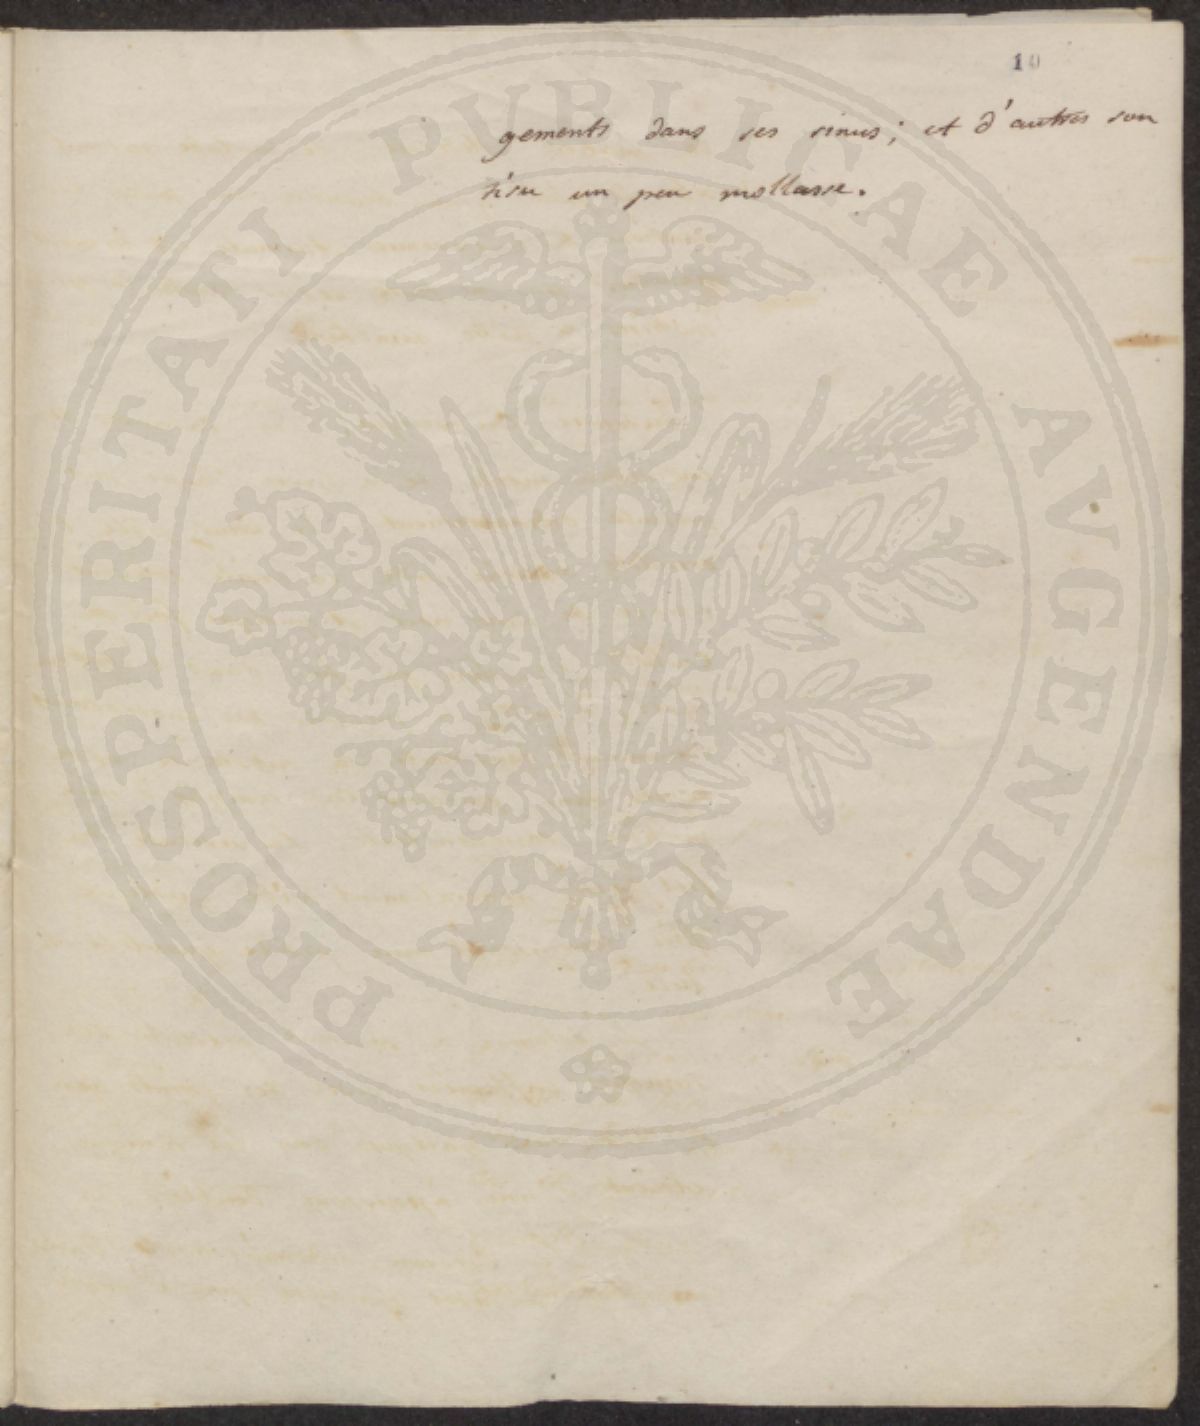 10
gements dans ses sinus ; et d'autres son
tisu un peu mollasse.
PROSPERITATI PUBLICAE AVGENDAE